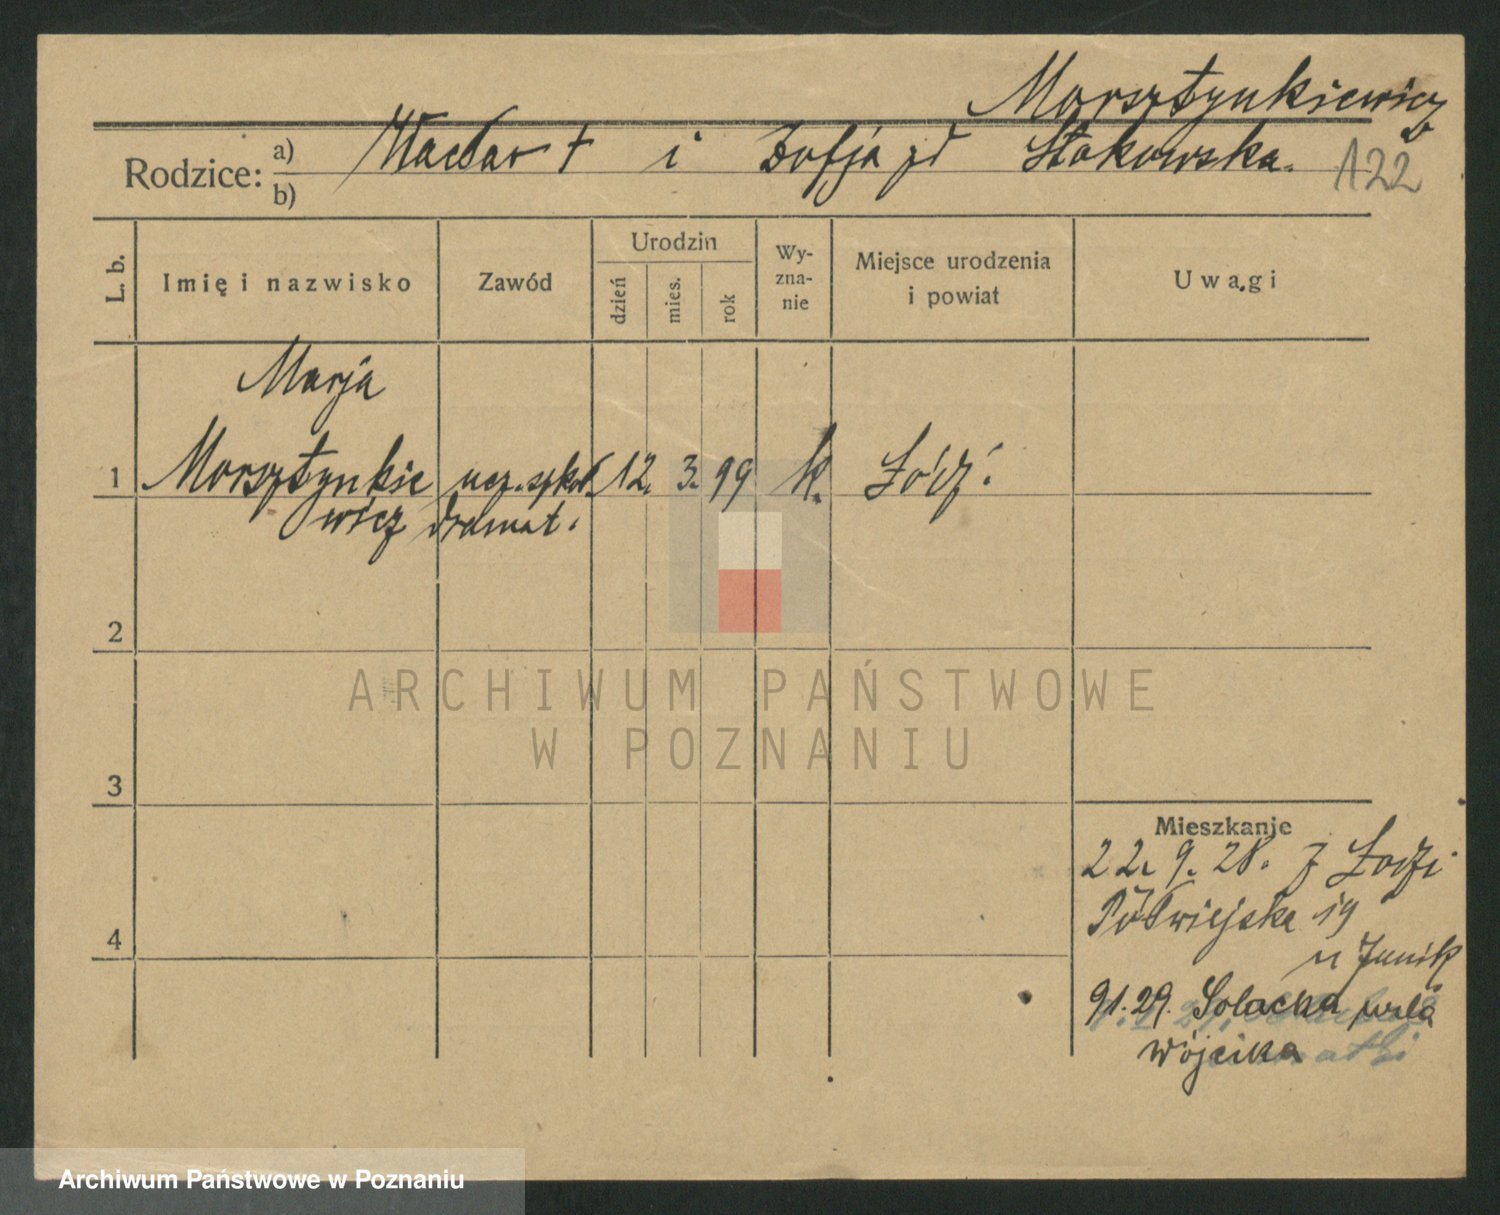 Morsztynkiewicz
Rodzice: a) Wacław † i Zofja zd Stokowska.
b)
122
L. b.
Imię i nazwisko
Zawód
Urodzin
dzień
mies.
rok
Wy-
zna-
nie
Miejsce urodzenia
i powiat
Uwagi
Marja
1 Morsztynkie ucz. szkoł. 12. 3. 99 k. Łódź.
wicz dramat.
2
3
4
Mieszkanie
22. 9. 28. z Łodzi
Półwiejska 19
u Junik
9.1.29. Solacka
Wójcika
ARCHIWUM PAŃSTWOWE
W POZNANIU
Archiwum Państwowe w Poznaniu